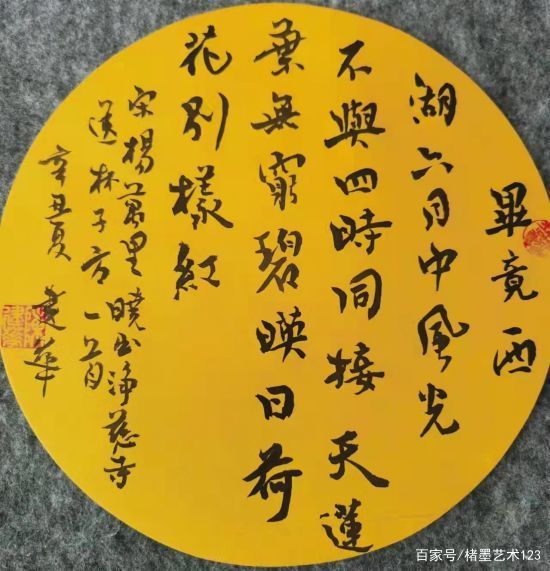 畢竟西
湖六月中風光
不與四時同接天蓮
葉無窮碧暎日荷
花別樣紅
宋楊萬里曉出淨慈寺
送林子方一首
辛丑夏建華
百家号/楮墨艺术123